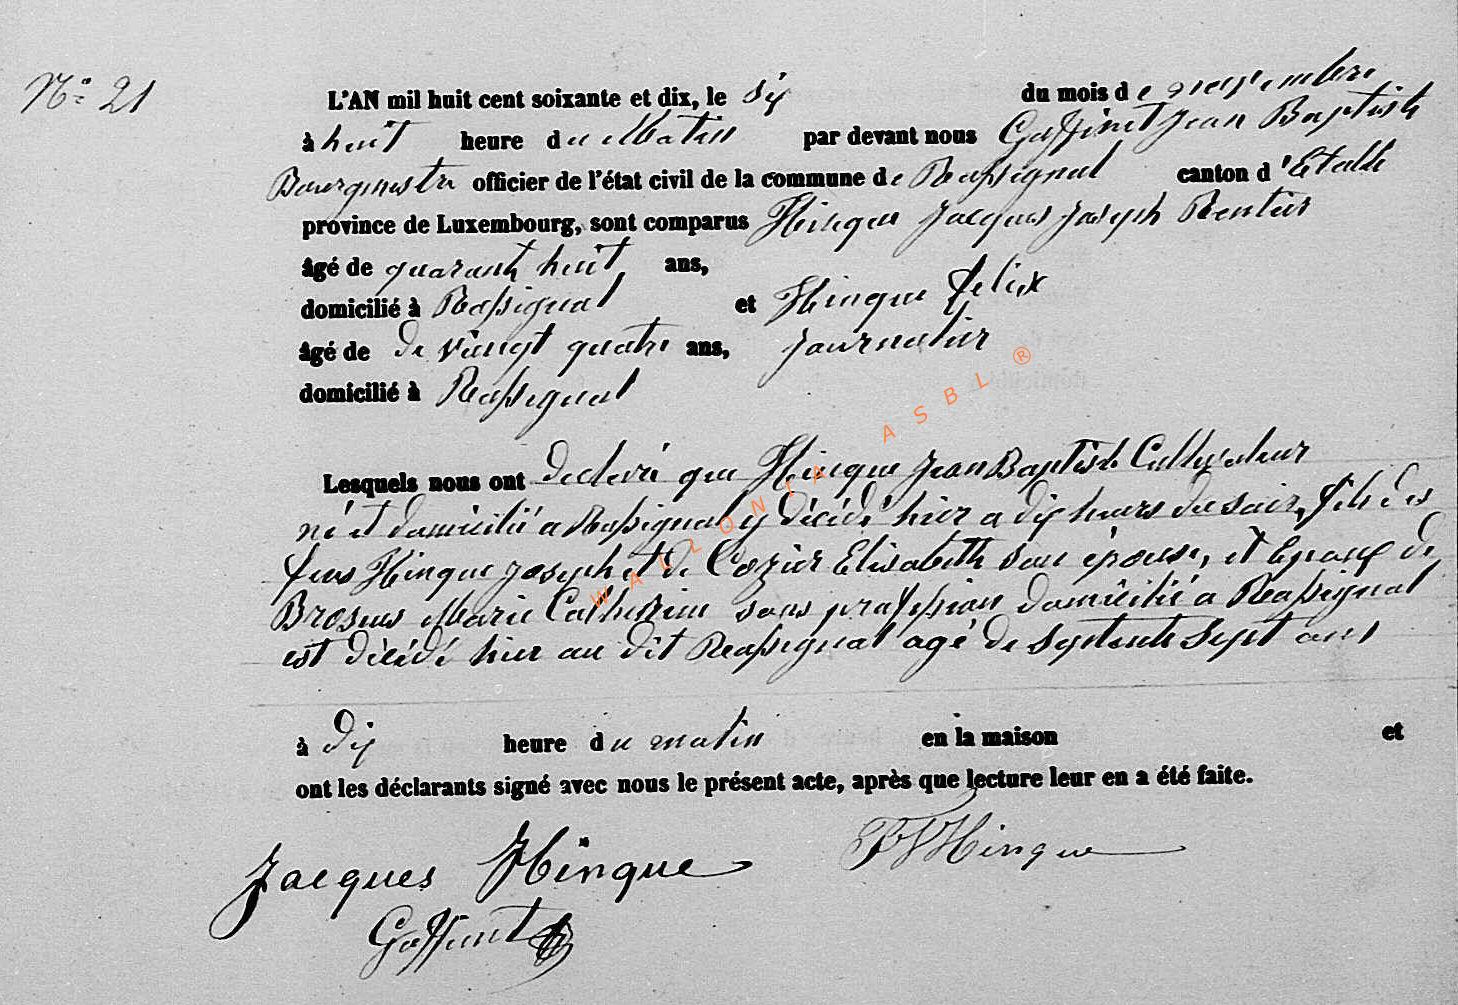 N° 21
L'AN mil huit cent soixante et dix, le Six du mois de novembre
à huit heure du Matin par devant nous Goffinet Jean Baptiste
Bourgmestre officier de l'état civil de la commune de Rossignol canton d'Etalle
province de Luxembourg, sont comparus Hinque Jacques Joseph Rentier
âgé de quarante huit ans,
domicilié à Rossignol et Hinque felix
âgé de de vingt quatre ans, journalier
domicilié à Rossignol
Lesquels nous ont declaré que Hinque Jean Baptiste Cultivateur
né et domicilié a Rossignol y décédé hier a dix heures du soir, fils des
feus Hinque joseph et de Cozier Elisabeth son épouse, et Epoux de
Brosius Marie Catherine sans profession domicilié a Rossignol
est décédé hier au dit Rossignol agé de septente sept ans
à dix heure du matin en la maison et
ont les déclarants signé avec nous le présent acte, après que lecture leur en a été faite.
Jacques Hinque F Hinque
Goffinet
WALLONIA ASBL ®